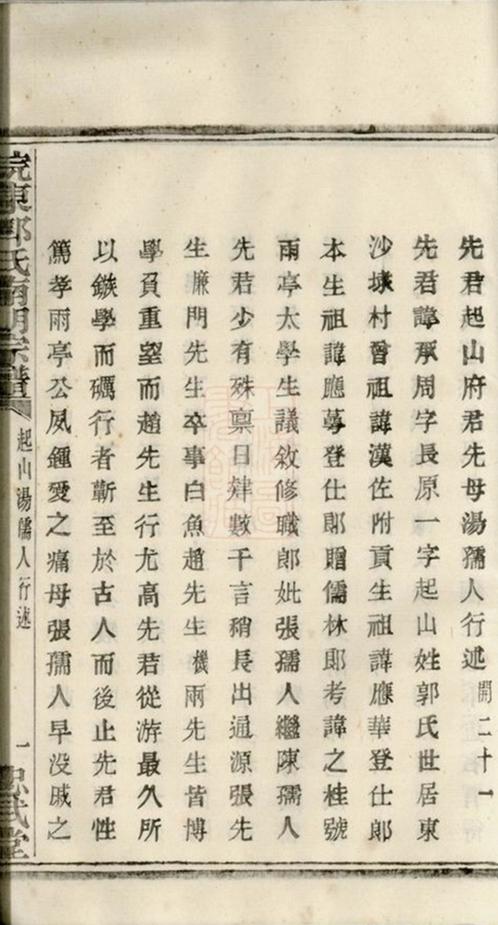 先君起山府君先母湯孺人行述開二十一
先君諱承周字長原一字起山姓郭氏世居東
沙塘村曾祖諱漢佐附貢生祖諱應華登仕郎
本生祖諱應蕚登仕郎贈儒林郎考諱之桂號
雨亭太學生議敘修職郎妣張孺人繼陳孺人
先君少有殊稟日肄數千言稍長出通源張先
生廉門先生卒事白魚趙先生機兩先生皆博
學負重望而趙先生行尤高先君從游最久所
以鏃學而礪行者蘄至於古人而後止先君性
篤孝雨亭公夙鍾愛之痛母張孺人早没戚之
東郭氏南明宗譜
起山湯孺人行述
一